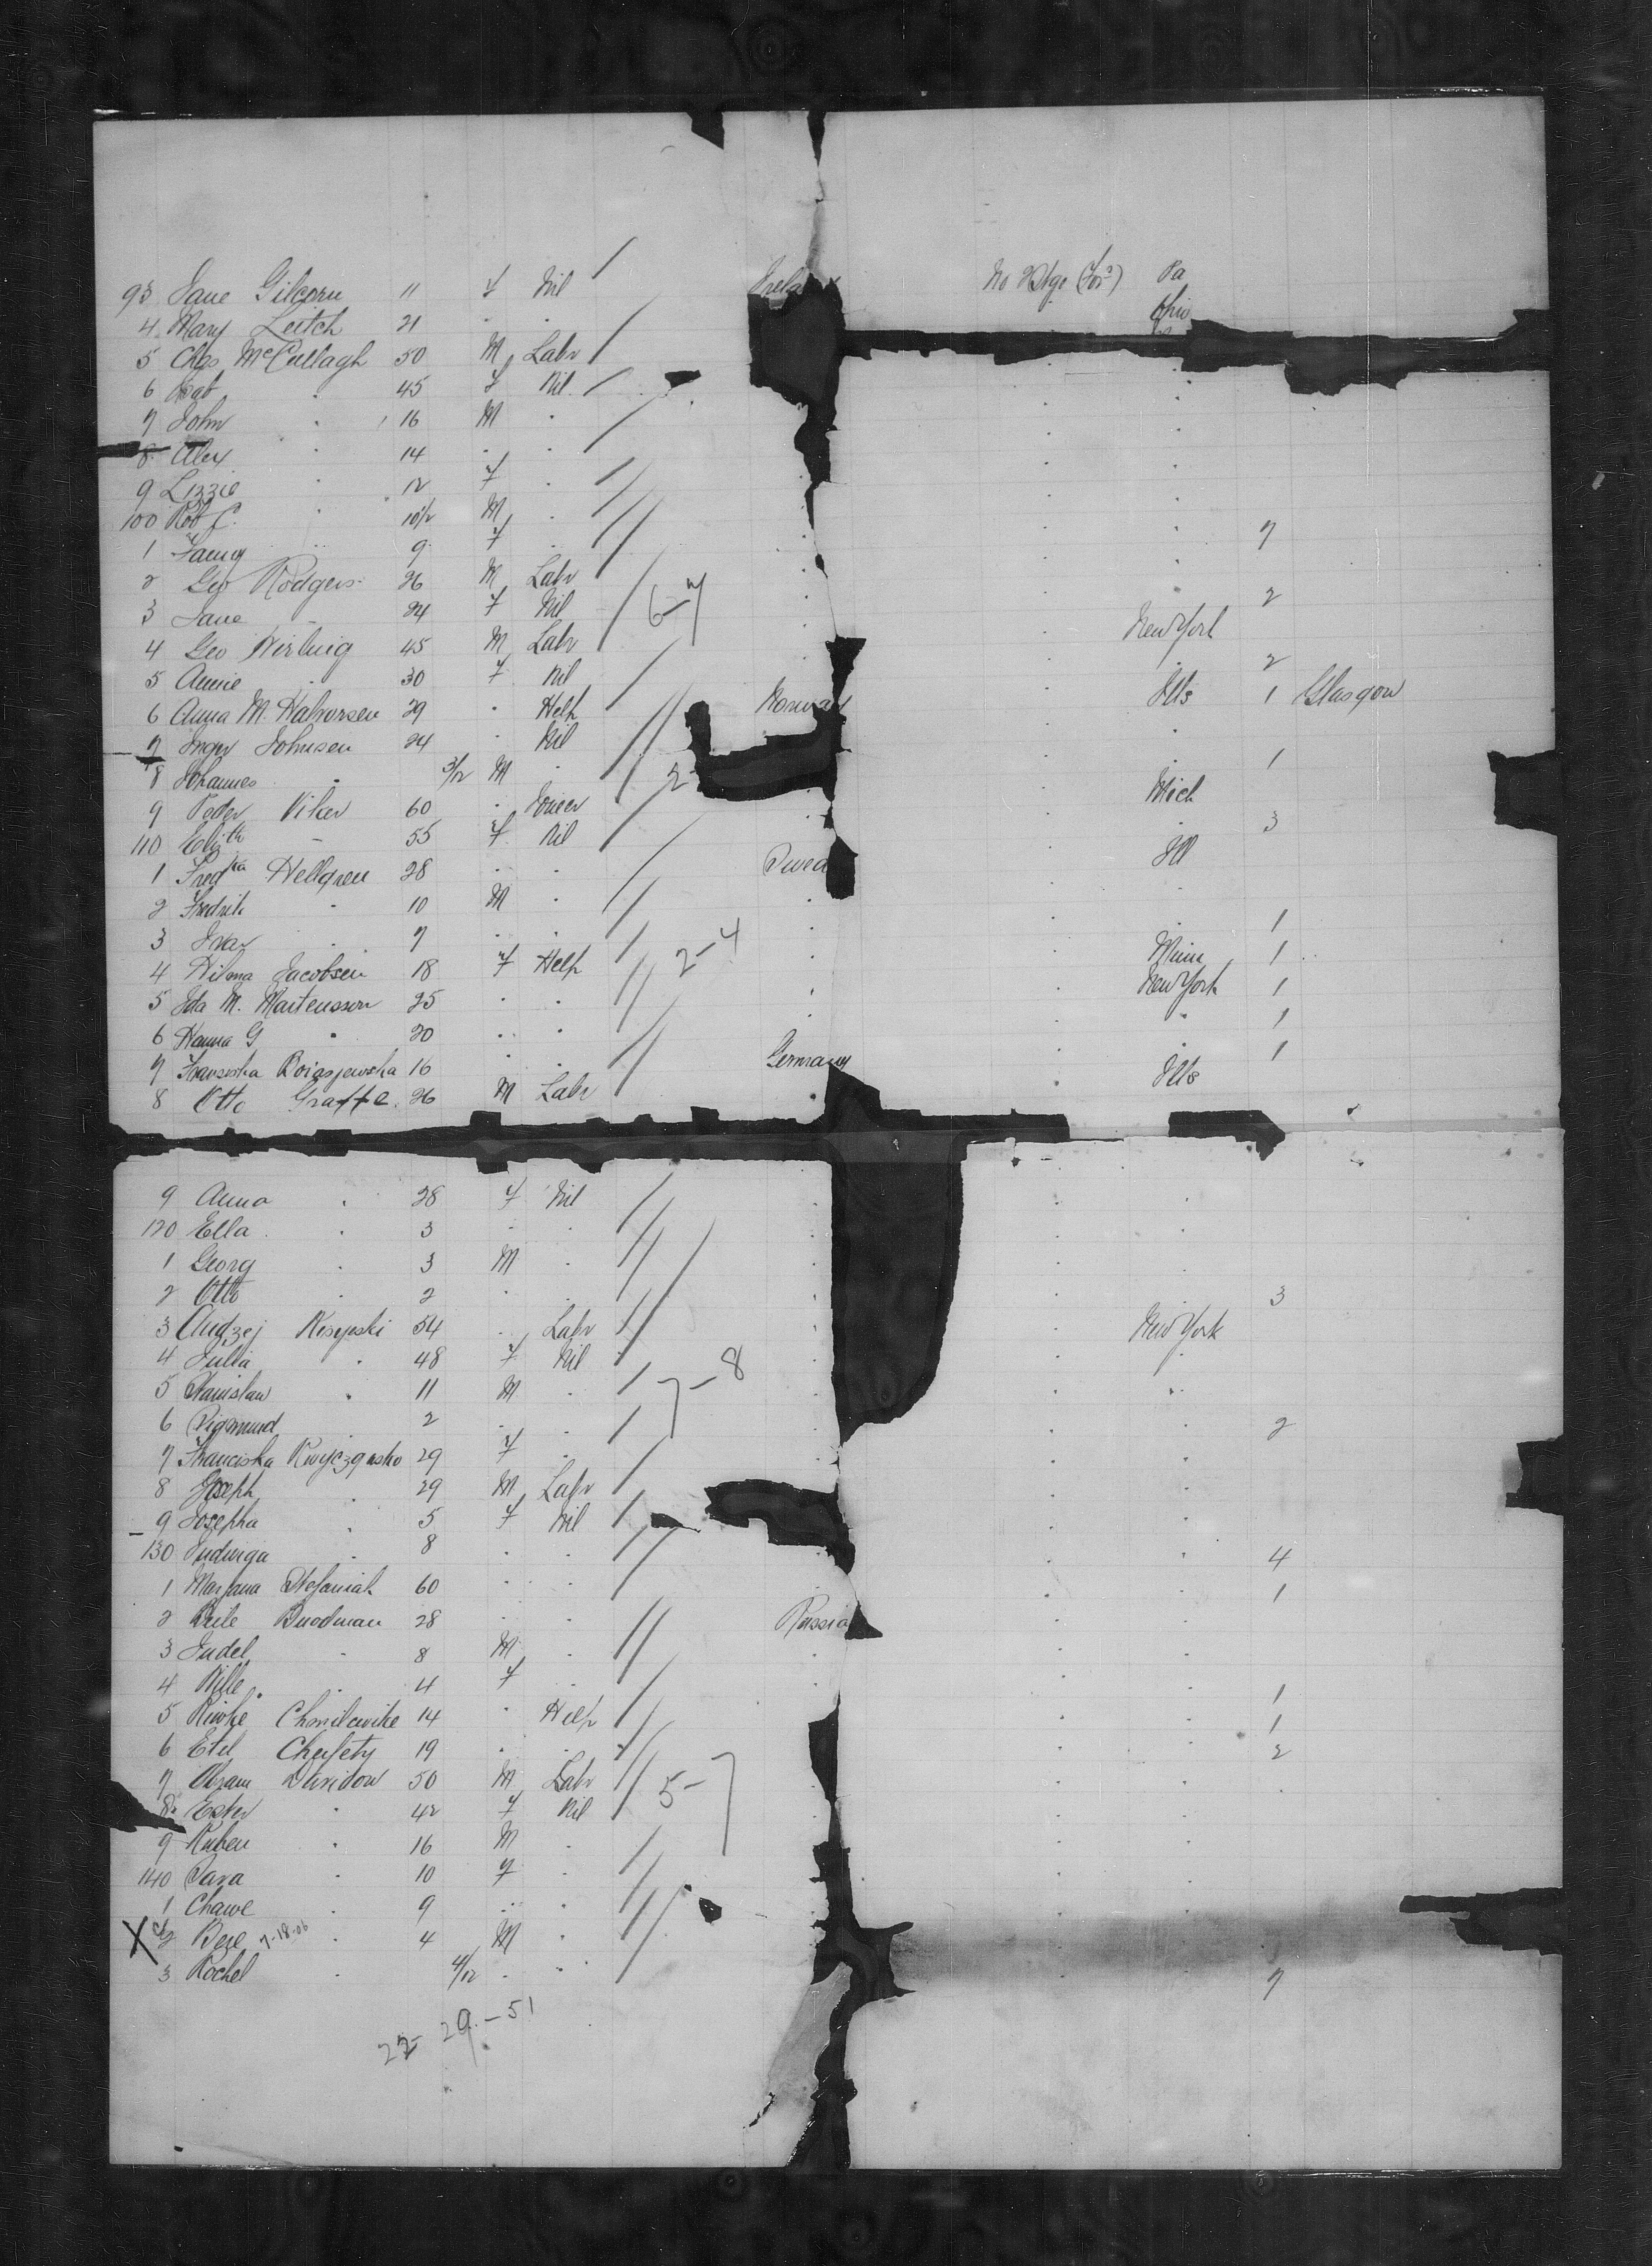 93 Jane Gilcorn 11 f Nil / Irela No Bstge (For?) Pa
4 Mary Leitch 21 " " Ohio
5 Chas McCullagh 50 M Labr /
6 Isab " 45 f Nil /
7 John " 16 M "
8 Alex " 14 " " /
9 Lizzie " 12 f " /
100 Rob C. " 10½ M " /
1 Fanny " 9 f " / 7
2 Geo Rodgers 26 M Labr /
3 Jane " 24 f Nil / 6-7 2
4 Geo 45 M Labr / New York
5 Annie " 30 f Nil / " 2
6 Anna M. Halvorsen 29 " Help / Norway Ills 1 Glasgow
7 Inger Johnsen 24 " Nil / "
8 Johannes " 3/12 M " / " 1
9 Peder Viker 60 " / Mich
110 Elizth " 55 f Nil / " 3
1 Fredka Hellgren 28 " " / Swed Ill
2 Fredrik " 10 M " / "
3 Ivar " 7 " " / " 1
4 Hilma Jacobsen 18 f Help / 2-4 Minn 1
5 Ida M. Martensson 25 " " / New York 1
6 Hanna G " 20 " " / " 1
7 16 " " / Germany " 1
8 Otto Graffe 26 M Labr / Ills
9 Anna " 28 f Nil /
120 Ella " 3 " " /
1 Georg " 3 M " /
2 Otto " 2 " " / 3
3 Andzej 54 " Labr / New York
4 Julia " 48 f Nil /
5 Stanislaw " 11 M " / 7-8
6 Sigmund " 2 " " / 2
7 Franciska 29 f " /
8 Joseph " 29 M Labr /
9 Josepha " 5 f Nil /
130 Ludwiga " 8 " " / 4
1 Maryana Stefaniak 60 " " / 1
2 28 " " / Russia
3 Judel " 8 M " /
4 " 4 f " / 1
5 Riwke 14 " Help / 1
6 Etel 19 " " / 2
7 Abram Davidow 50 M Labr / 5-7
8 Ester " 42 f Nil /
9 Ruben " 16 M "
140 Sara " 10 f " /
1 Chawe " 9 " " /
X 2 7-18-06 " 4 M " /
3 Rochel " 4/12 " " / 7
22- 29-51